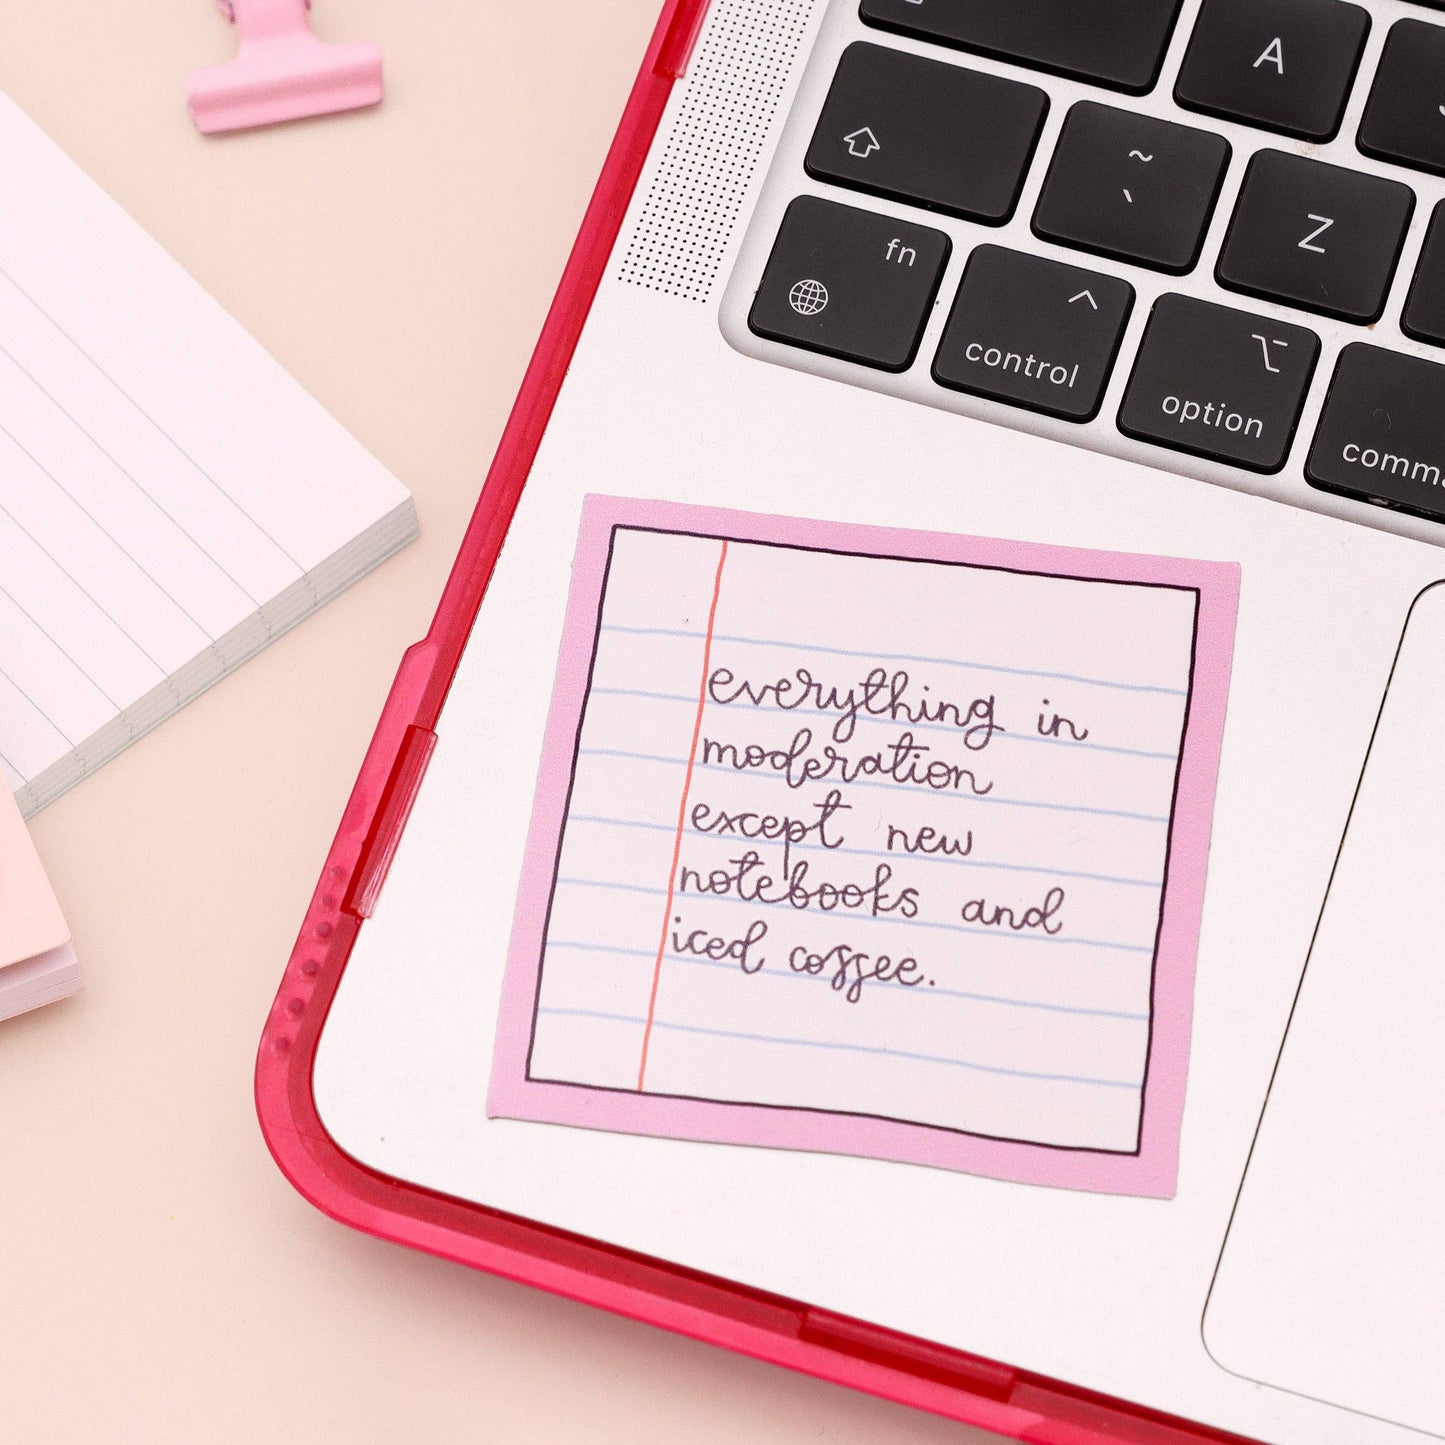 A
~
`
Z
fn
control
^
option
comma
everything in
moderation
except new
notebooks and
iced coffee.